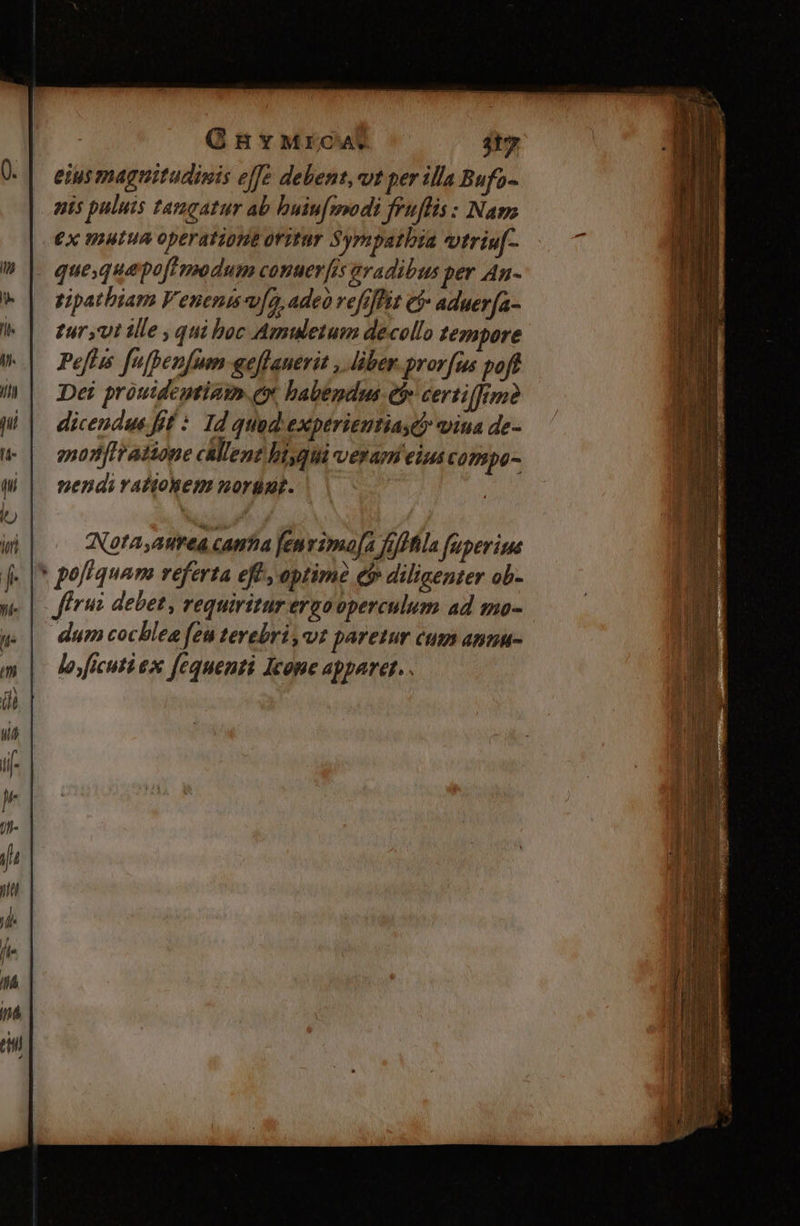 CHYMICA. 317
eius magnitudinis eſſe debent, vt per illa Bufo-
nis puluis tangatur ab huiuſmodi fruſtis: Nam
ex mutua operatione oritur Sympathia vtriuſ-
que, quæ poſtmodum conuerſis gradibus per An-
tipathiam Venenis vſa, adeò reſiſtit & aduerſa-
tur, vt ille, qui hoc Amuletum de collo tempore
Peſtis ſuſpenſum geſtauerit, liber prorſus poſt
Dei prouidentiam ex habendus & certiſſimè
dicendus ſit: Id quod experientia, & viua de-
monſtratione callent hi, qui veram eius compo-
nendi rationem norunt.
Nota, aurea canna ſeu rimoſa fiſtula ſuperius
* poſtquam referta eſt, optimè & diligenter ob-
ſtrui debet, requiritur ergo operculum ad mo-
dum cochleæ ſeu terebri, vt paretur cum annu-
lo, ſicuti ex ſequenti Icone apparet.